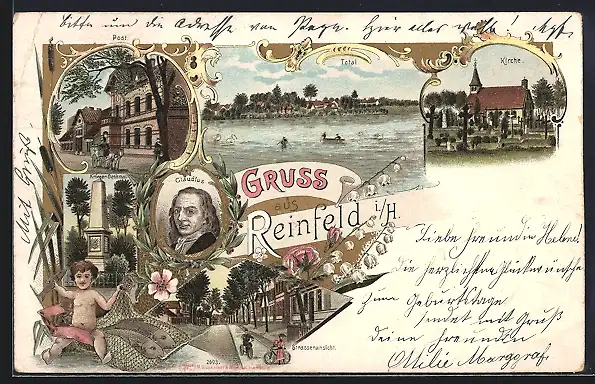 bitte um die Adresse von Papa. Hier alles wohl!
Post
Total
Kirche
Krieger-Denkmal
Claudius
GRUSS
aus
Reinfeld i/H.
Mit Gruß
Liebe Freundin Helene!
Die herzlichsten Glückwünsche
zum Geburtstage
sendet mit Gruß
deine Freundin
Ottilie Marggraf.
Strassenansicht.
2603.